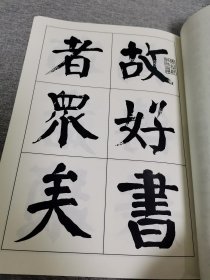 故好書
者眾矣